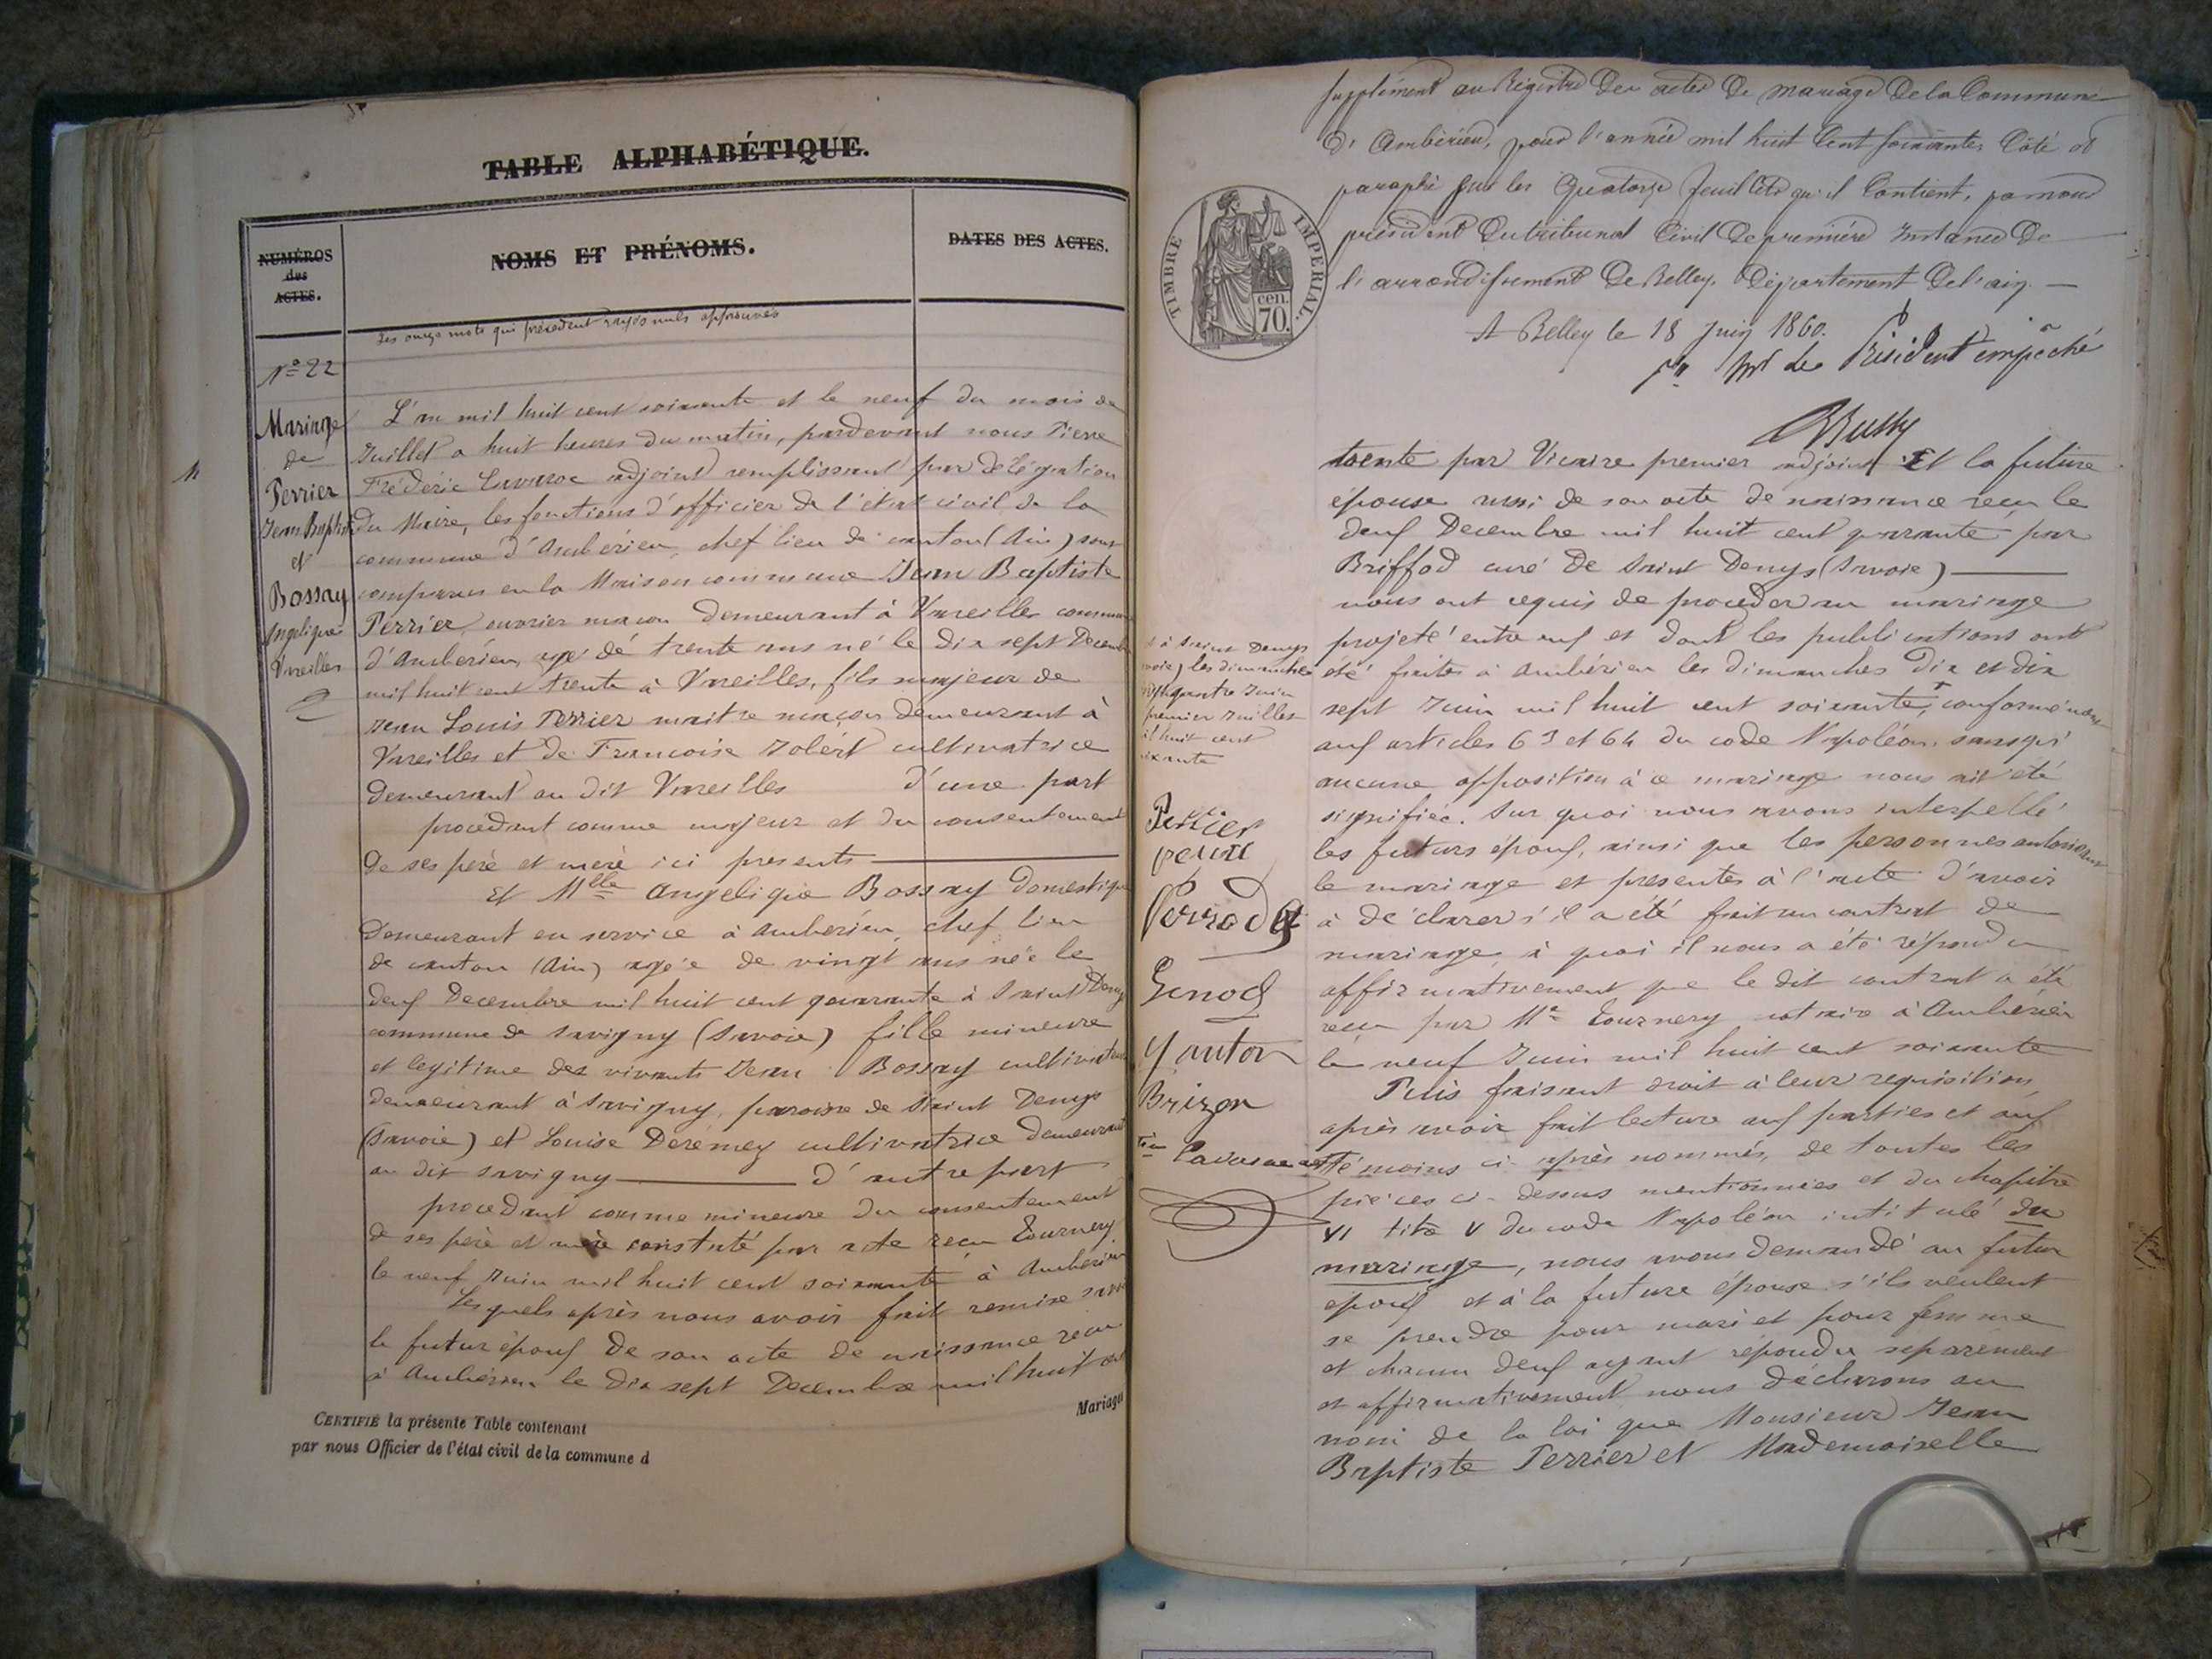 TABLE ALPHABÉTIQUE.
NUMÉROS
des
ACTES.
NOMS ET PRÉNOMS.
DATES DES ACTES.
Les onze mots qui précèdent rayés nuls approuvés
N° 22
Mariage
de
Perrier
Jean Baptiste
et
Bossay
Angelique
Vareilles
L'an mil huit cent soixante et le neuf du mois de
Juillet a huit heures du matin, pardevant nous Pierre
Fréderic Cavaroc adjoint remplissant par délégation
du Maire, les fonctions d'officier de l'état civil de la
commune d'Ambérieu, chef lieu de canton (Ain) sont
comparus en la Maison commune Jean Baptiste
Perrier, ouvrier maçon demeurant à Vareilles commune
d'Ambérieu, agé dé trente ans né le dix sept Decembre
mil huit cent trente à Vareilles, fils majeur de
Jean Louis Perrier maitre maçon demeurant à
Vareilles et de Francoise Jolért cultivatrice
demeurant au dit Vareilles d'une part
procedant comme majeur et du consentement
de ses peré et meré ici presents
Et Mlle Angelique Bossay domestique
demeurant en service à Ambérieu, chef lieu
de canton (Ain) agée de vingt ans née le
deux Decembre mil huit cent quarante à Saint Denys
commune de Savigny (Savoie) fille mineure
et legitime des vivants Jean Bossay cultivateur
demeurant à Savigny, paroisse de Saint Denys
(Savoie) et Louise Derémey cultivatrice demeurant
au dit Savigny d'autre part
procedant comme mineure du consentement
de ses père et mère constaté par acte recu Tournery
le neuf Juin mil huit cent soixante à Ambérieu
Lesquels après nous avoir fait remise savoir
le futur époux de son acte de naissance recu
à Ambérieu le dix sept Decembre mil huit cent
Mariages
CERTIFIÉ la présente Table contenant
par nous Officier de l'état civil de la commune d
Supplément au Régistre des actes de mariage de la Commune
d'Ambérieu, pour l'année mil huit Cent soixante, Côté et
paraphé sur les Quatorze feuillets qu'il Contient, par nous
président du tribunal Civil de première Instance de
l'arrondissement de Belley, Département de l'ain.
TIMBRE IMPERIAL.
cen.
70.
A Belley le 18 Juin 1860.
Pr Mr le Président empêché
trente par Vicaire premier adjoint Et la future
épouse aussi de son acte de naissance recu le
deux Decembre mil huit cent quarante par
Briffod curé de Saint Denys (Savoie)
nous ont requis de proceder au mariage
projeté entre eux et dont les publications ont
été faites à Ambérieu les dimanches dix et dix
sept Juin mil huit cent soixante, conformément
aux articles 63 et 64 du code Napoléon, sans qu'
aucune opposition à ce mariage nous ait été
signifiée. Sur quoi nous avons interpellé
les futurs époux, ainsi que les personnes autorisant
le mariage et presentes à l'acte d'avoir
à déclarer s'il a été fait un contrat de
mariage, à quoi il nous a été répondu
affirmativement que le dit contrat a été
recu par Me Tournery notaire à Ambérieu
le neuf Juin mil huit cent soixante
Puis faisant droit à leur requisition
après avoir fait lecture aux parties et aux
Témoins ci-après nommés, de toutes les
pièces ci-dessus mentionnées et du chapitre
VI titre V du code Napoléon intitulé du
mariage, nous avons demandé au futur
époux et à la future épouse s'ils veulent
se prendre pour mari et pour femme
et chacun deux ayant répondu separément
et affirmativement nous déclarons au
nom de la loi que Monsieur Jean
Baptiste Perrier et Mademoiselle
à Saint Denys
les dimanches
quatre Juin
premier Juillet
huit cent
Perrier
Perrodet
Genod
Brizon
Cavaroc